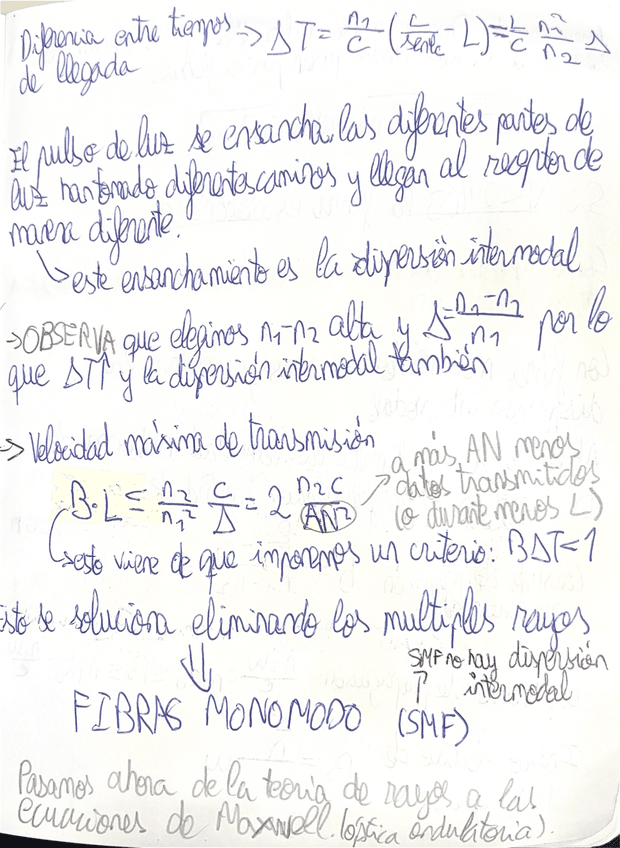 Diferencia entre tiempos → ΔT = n₁/c (L/senθc - L) = L/c n₁²/n₂ Δ
de llegada
El pulso de luz se ensancha, las diferentes partes de
luz han tomado diferentes caminos y llegan al receptor de
manera diferente.
↳ este ensanchamiento es la dispersión intermodal
→ OBSERVA que elegimos n₁-n₂ alta y Δ = (n₁-n₂)/n₁ por lo
que ΔT↑ y la dispersión intermodal también
→ Velocidad máxima de transmisión
a más AN menos
datos transmitidos
(o durante menos L)
B·L ≤ n₂/n₁² c/Δ = 2 n₂c/AN²
↳ esto viene de que imponemos un criterio: BΔT<1
Esto se soluciona eliminando los multiples rayos
SMF no hay dispersión
↑ intermodal
⇓
FIBRAS MONOMODO (SMF)
Pasamos ahora de la teoria de rayos a las
ecuaciones de Maxwell. (optica ondulatoria).